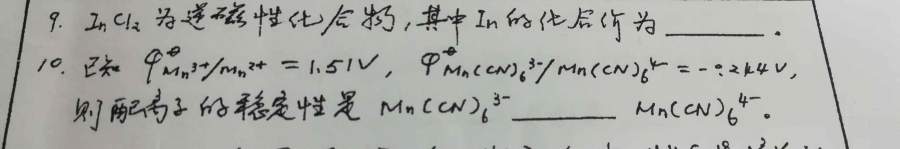 9. InCl₂ 为逆磁性化合物，其中 In 的化合价为______.
10. 已知 φ^θ Mn³⁺/Mn²⁺ = 1.51V， φ^θ Mn(CN)₆³⁻/Mn(CN)₆⁴⁻ = -0.244V，
则配离子的稳定性是 Mn(CN)₆³⁻ ______ Mn(CN)₆⁴⁻。